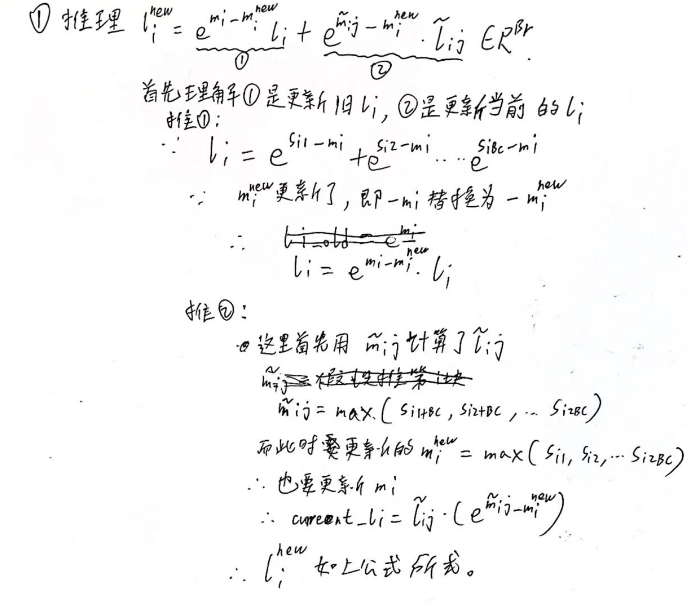 ① 推理 l_i^{new} = e^{m_i - m_i^{new}} l_i + e^{\tilde{m}_{ij} - m_i^{new}} · \tilde{l}_{ij} ∈ R^{Br}.
① ②
首先理解①是更新旧l_i, ②是更新当前的l_i
推①:
∵ l_i = e^{S_{i1} - m_i} + e^{S_{i2} - m_i} ..... e^{S_{iBc} - m_i}
∵ m_i^{new}更新了, 即 -m_i 替换为 -m_i^{new}
∴ l_i_old = e^{m_i}
l_i = e^{m_i - m_i^{new}} · l_i
推②:
这里首先用 \tilde{m}_{ij} 计算了 \tilde{l}_{ij}
\tilde{m}_{ij} = max.( S_{i1+BC}, S_{i2+BC}, ... S_{i2BC})
而此时要更新的 m_i^{new} = max( S_{i1}, S_{i2}, ... S_{i2BC})
∴ 也要更新 m_i
∴ current_l_i = \tilde{l}_{ij} · (e^{\tilde{m}_{ij} - m_i^{new}})
∴ l_i^{new} 如上公式所或。